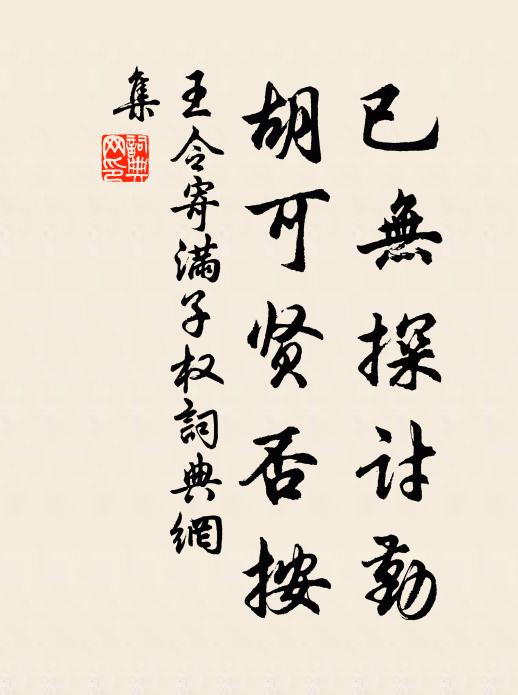 已無探討勤
胡可贤否按
王令寄滿子权詞典網
集
詞典
网印